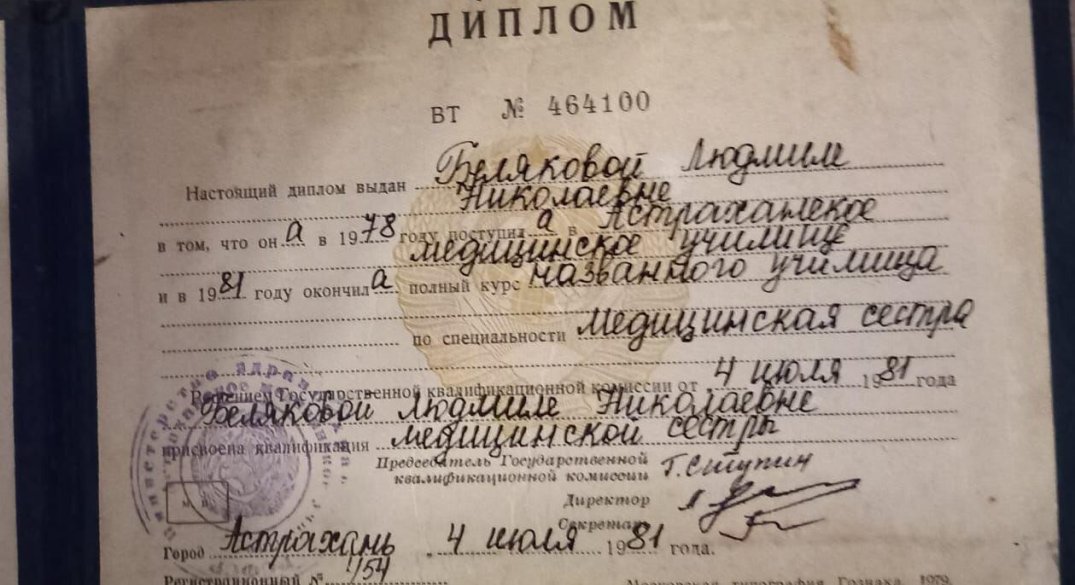 ДИПЛОМ
ВТ № 464100
Настоящий диплом выдан Беляковой Людмиле
Николаевне
в том, что он а в 1978 году поступил а в Астраханское
медицинское училище
и в 1981 году окончил а полный курс названного училища
по специальности медицинская сестра
Решением Государственной квалификационной комиссии от 4 июля 1981 года
Беляковой Людмиле Николаевне
присвоена квалификация медицинской сестры
Председатель Государственной
квалификационной комиссии Г. Ступин
Директор
Секретарь
Город Астрахань 4 июля 1981 года.
Регистрационный № 454
Московская типография Гознака. 1979.
министерство здраво